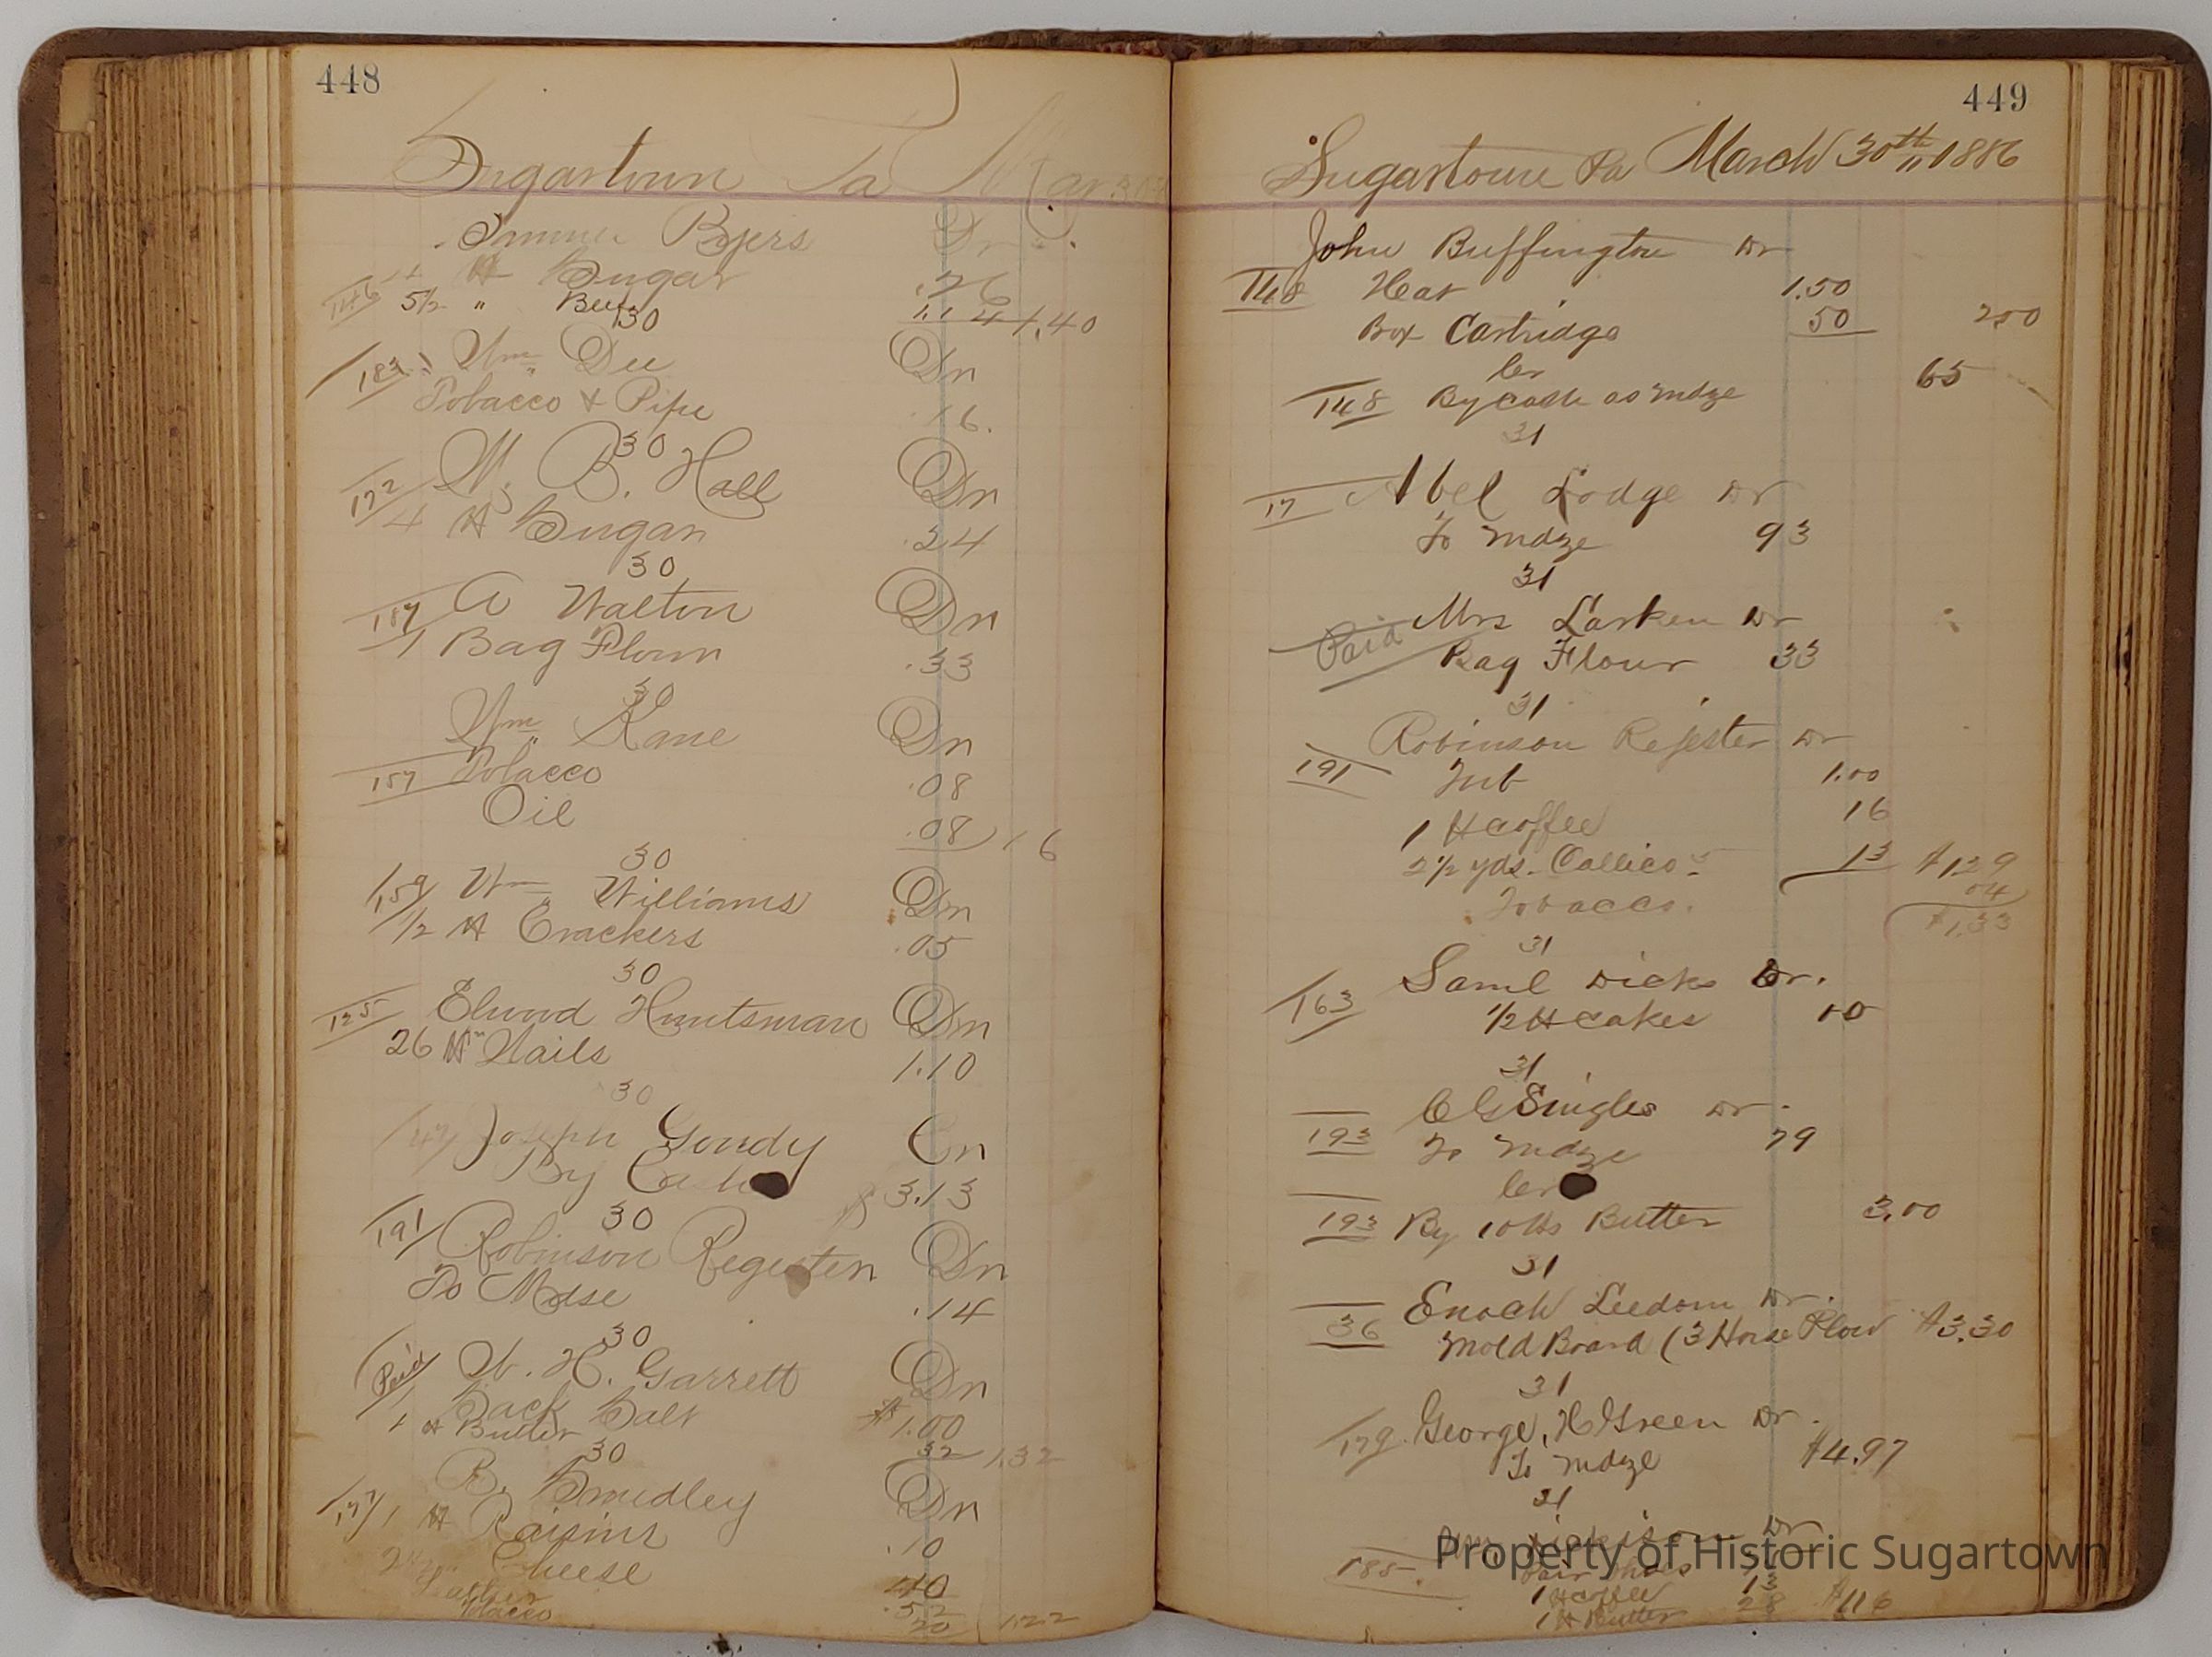 448
Sugartown Pa Mar 30
Byers Dr
146 # Sugar .26
5 1/2 " Beef 1.14 1.40
30
183 Wm Dee Dr
Tobacco & Pipe 16.
30
172 W. B. Hall Dr
4 # Sugar .24
30
187 A Walton Dr
1 Bag Flour .33
30
Wm Kane Dr
157 Tobacco .08
Oil .08 16
30
159 Wm Williams Dr
1/2 # Crackers .05
30
125 Elwood Huntsman Dr
26 # Nails 1.10
30
Joseph Goudy Cr
By Cash $ 3.13
30
191 Robinson Register Dr
To Mdse .14
30
Paid W. H. Garrett Dr
1 Sack Salt $1.00
1 # Butter 32 1.32
30
R. Smedley Dr
177 1 # Raisins .10
Cheese 40
Leather .52
Tobacco 20 1.22
449
Sugartown Pa March 30th " 1886
John Buffington Dr
148 Hat 1.50
Box Cartridge 50 200
Cr
148 By cash as mdze 65
31
17 Abel Lodge Dr
To mdze 93
31
Paid Mrs Larken Dr
Bag Flour 33
31
Robinson Rejester Dr
191 Tub 1.00
1 # coffee 16
2 1/2 yds. Callico 13 $129
Tobacco. 04
$1.33
31
Saml Dicks Dr.
163 1/2 # cakes 10
31
C G Singles Dr.
193 To mdze 79
Cr
193 By 10 lbs Butter 3.00
31
Enoch Leedom Dr.
36 Mold Board (3 Horse Plow $3.30
31
179 George, H Green Dr.
To mdze $4.97
31
Dr
185. Pair Shoes
1 # coffee 13
1 # Butter 28 $116
Property of Historic Sugartown